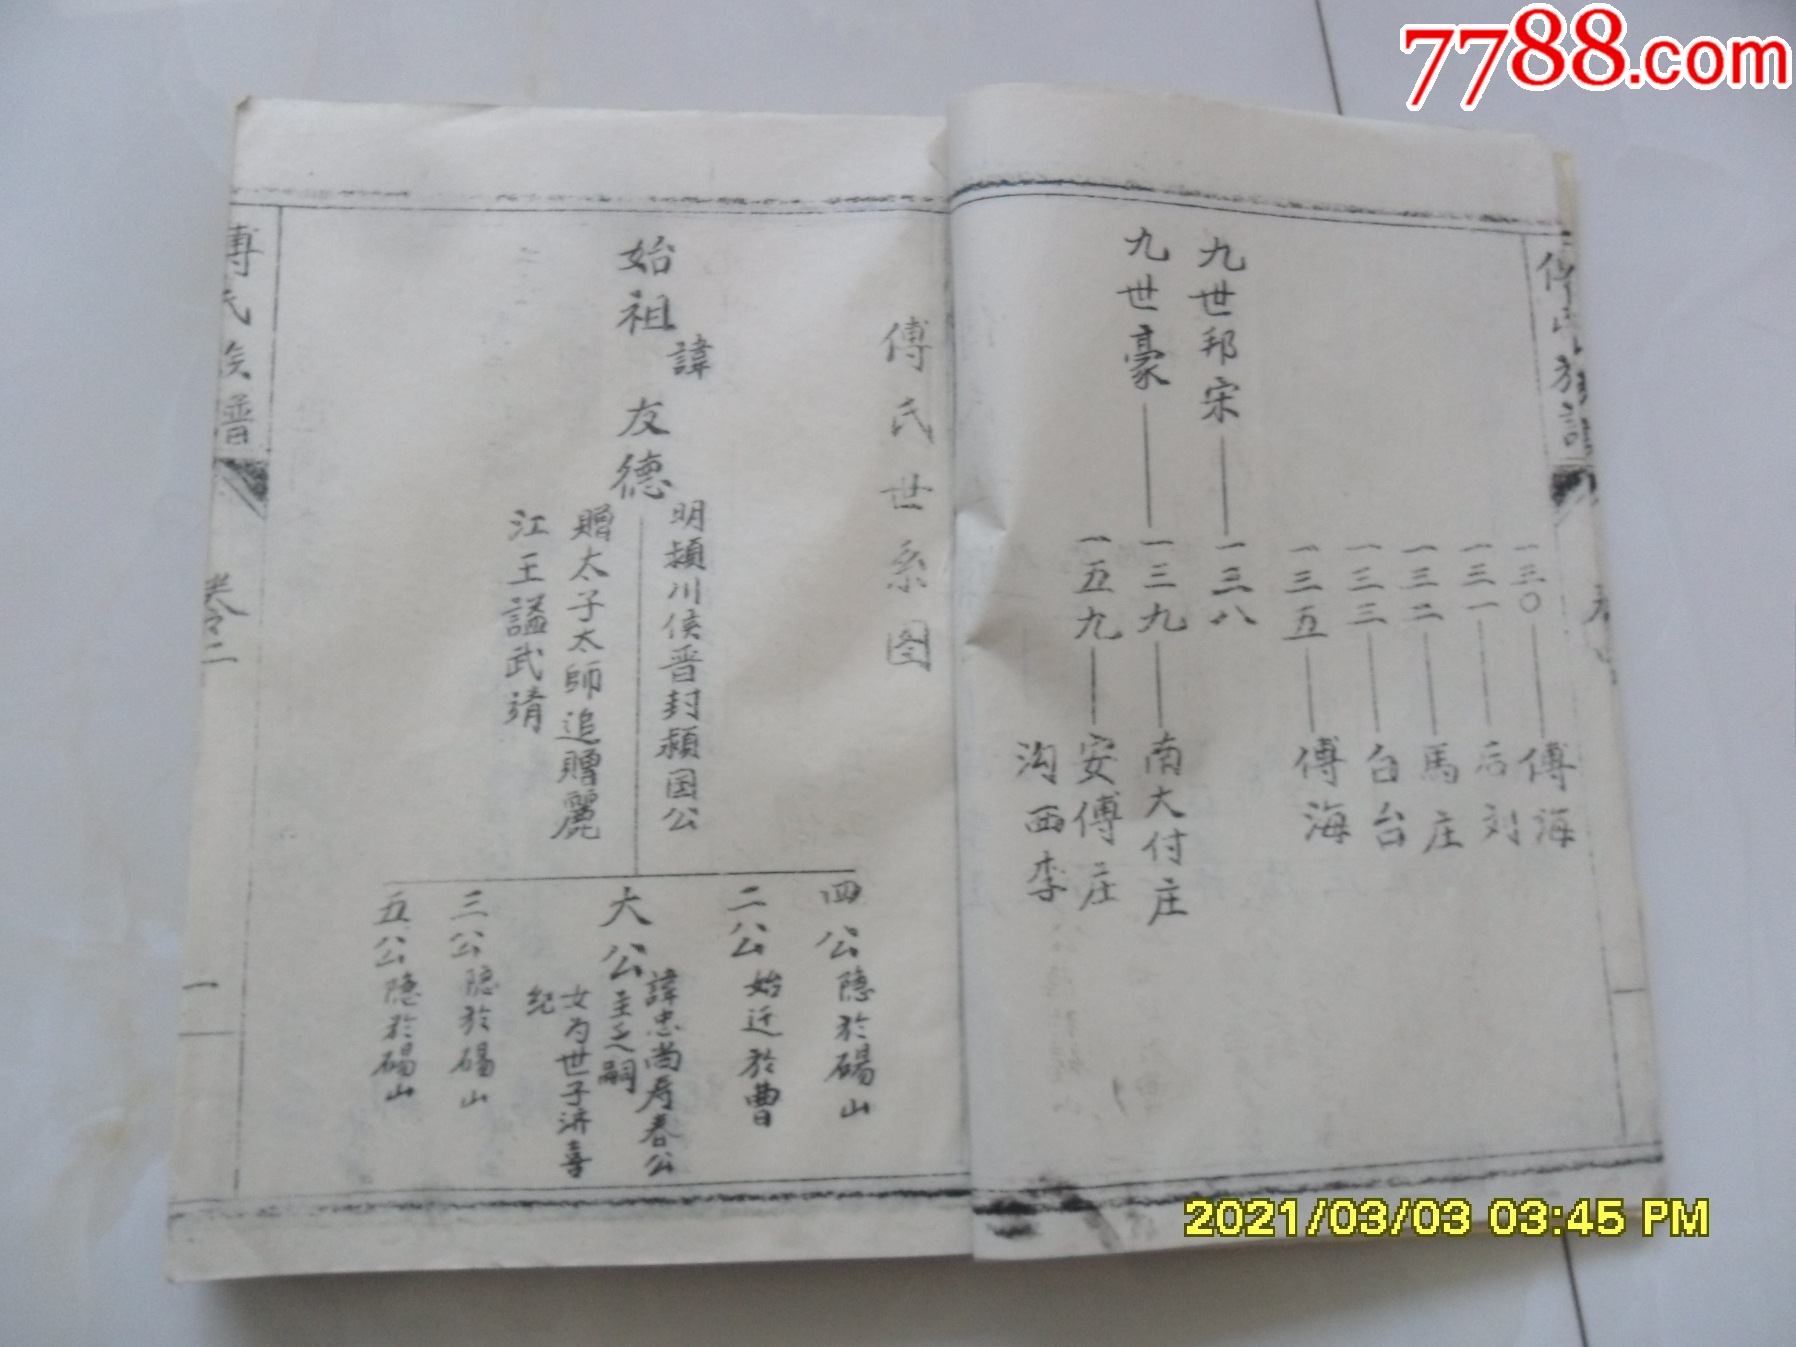 7788.com
傅氏族譜
一三〇——傅海
一三一——后刘
一三二——馬庄
一三三——白台
一三五——傅海
九世邦宋——一三八
九世豪——一三九——南大付庄
一五九——安傅庄
沟西李
一
傅氏世系图
始祖諱友德
明頴川侯晋封頴国公
贈太子太師追贈麗
江王謚武靖
四公隐於碭山
二公始迁於曹
大公諱忠尚寿春公
主乏嗣
女为世子济喜
紀
三公隐於碭山
五公隐於碭山
傅氏族普
卷二
一
2021/03/03 03:45 PM